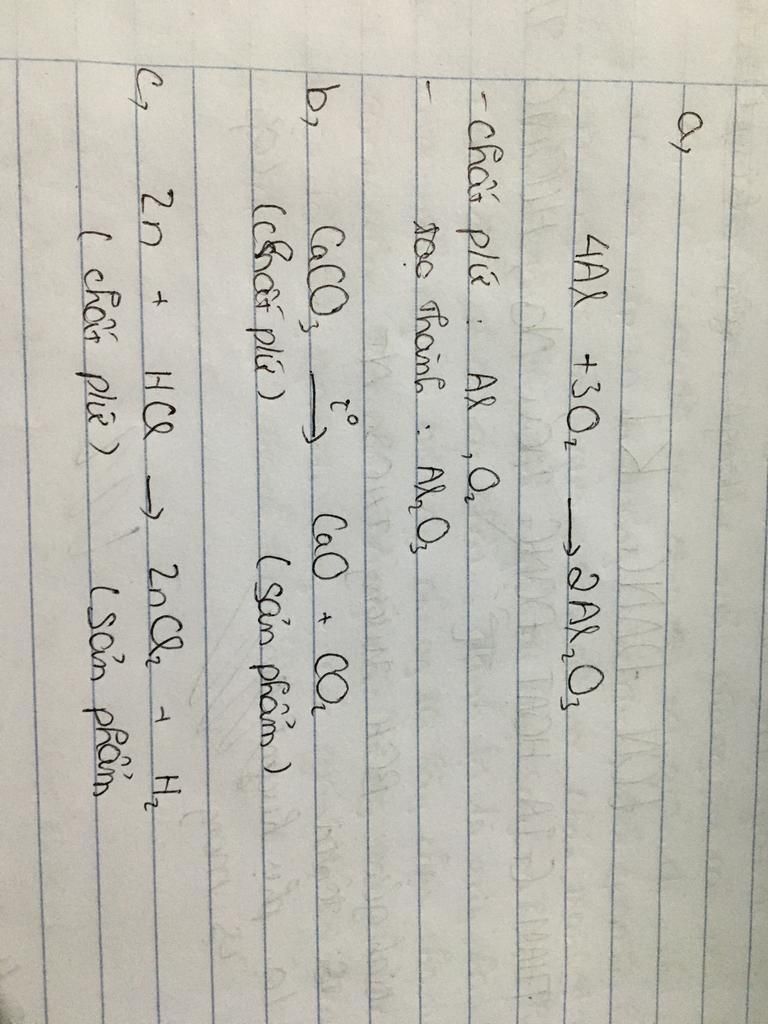 a,
4Al + 3O₂ → 2Al₂O₃
- chất pứ : Al , O₂
- tạo thành : Al₂O₃
b, CaCO₃ →t° CaO + CO₂
(chất pứ) (sản phẩm)
c, Zn + HCl → ZnCl₂ + H₂
(chất pứ) (sản phẩm